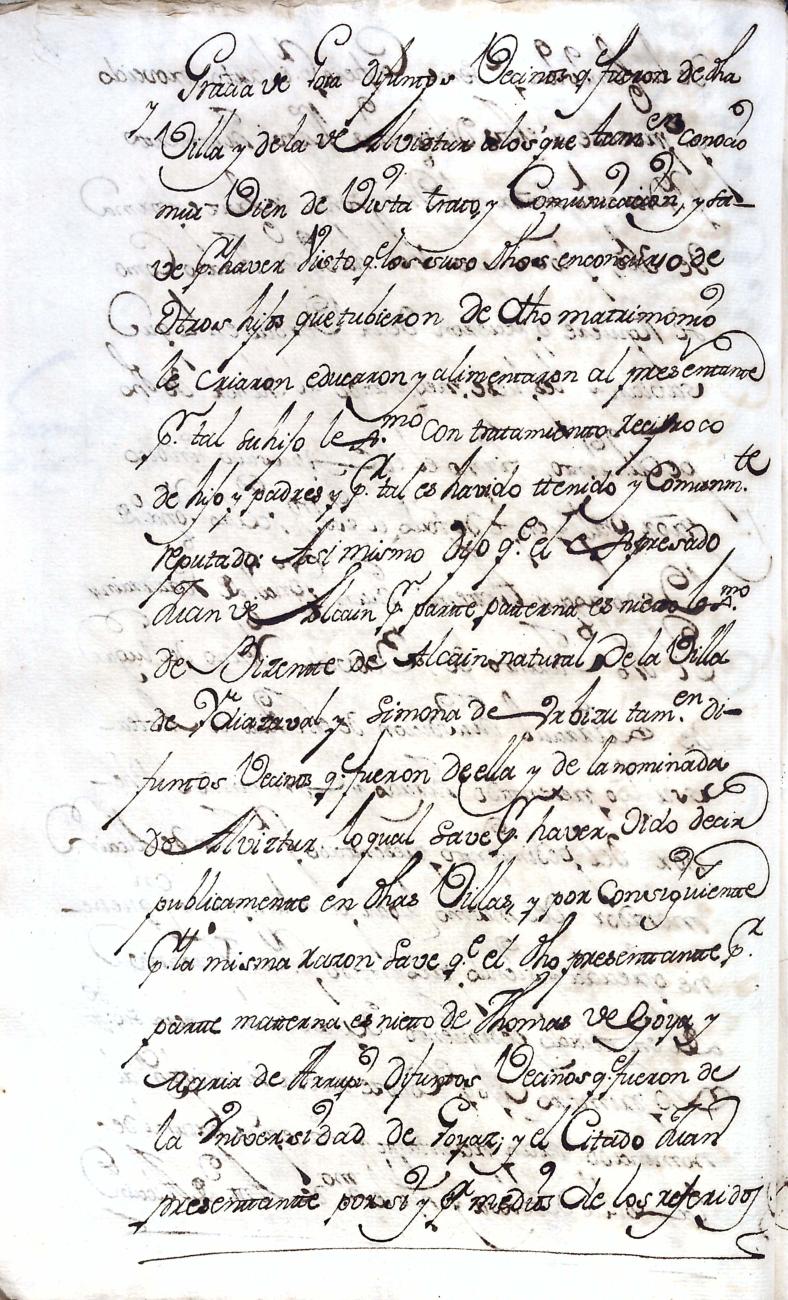 Gracia de Goia difuntos Vecinos q.e fueron de dha
Villa y de la de Alviztur a los que tam.en conocio
mui bien de Vista trato, y Comunicacion, y sa-
ve p.r haver visto q.e los suso dhos en consorcio de
otros hijos que tubieron de dho matrimonio
le criaron educaron y alimentaron al presentante
p.r tal su hijo lex.mo con tratamiento reciproco
de hijo y padres y p.r tal es havido ttenido y Comunm.te
reputado: Assi mismo dijo q.e el expresado
Juan de Alcain p.r parte paterna es nieto lex.mo
de Bizente de Alcain natural de la Villa
de Ydiazaval y Simona de Urbizu tam.en di-
funtos Vecinos q.e fueron de ella y de la nominada
de Alviztur lo qual save p.r haver oido decir
publicamente en dhas Villas, y por Consiguiente
p.r la misma razon save q.e el dho presentante p.r
parte materna es nieto de Thomas de Goya y
Maria de Arrupe Difuntos Vecinos q.e fueron de
la Universidad de Goyaz; y el Citado Juan
presentante por si y p.r medios de los referidos